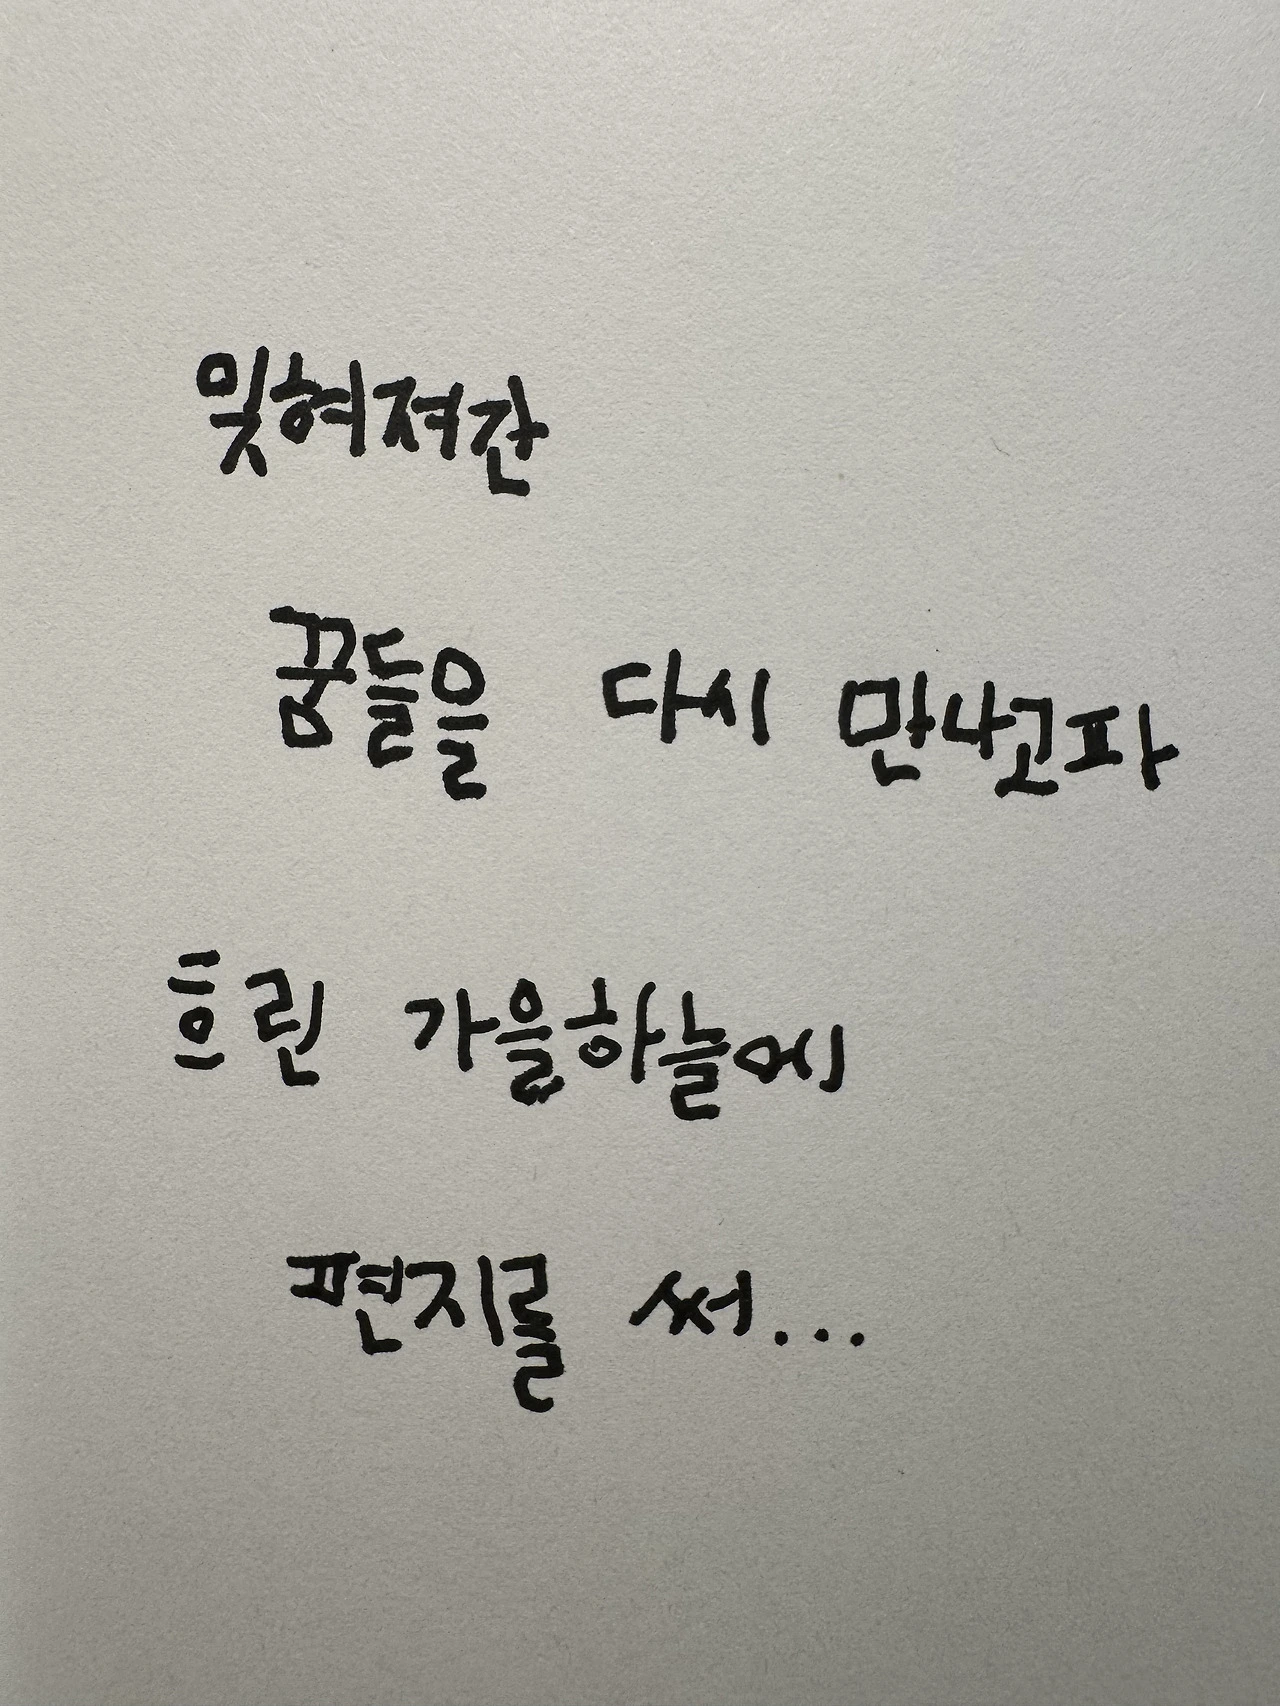 잊혀져간
꿈들을 다시 만나고파
흐린 가을하늘에
편지를 써...